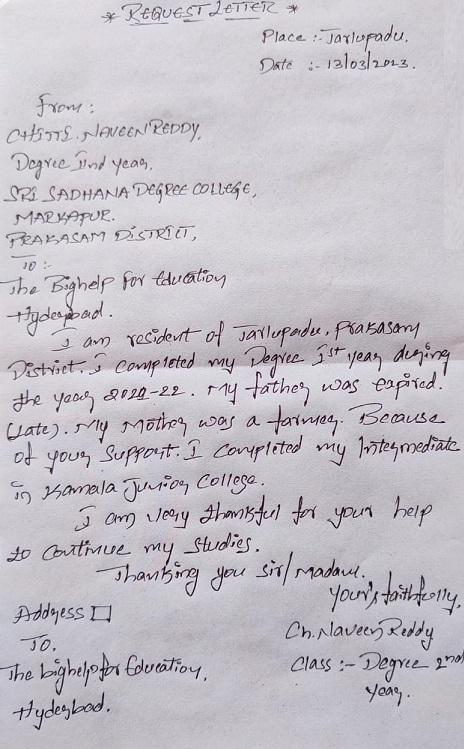 * REQUEST LETTER *
Place :- Tarlupadu.
Date :- 13/03/2023.
from :
CHITTE. NAVEEN REDDY,
Degree IInd year,
SRI SADHANA DEGREE COLLEGE,
MARKAPUR.
PRAKASAM DISTRICT,
TO :-
The Bighelp for Education
Hyderbad.
I am resident of Tarlupadu, Prakasam
District. I completed my Degree Ist year during
the year 2021-22. My father was expired.
(Late). My Mother was a farmer. Because
of your Support. I completed my Intermediate
in Kamala Junior College.
I am very thankful for your help
to continue my studies.
Thanking you sir/madam.
Your's faithfully,
Address
Ch. Naveen Reddy
TO.
Class :- Degree 2nd
The bighelp for Education,
year.
Hyderbad.